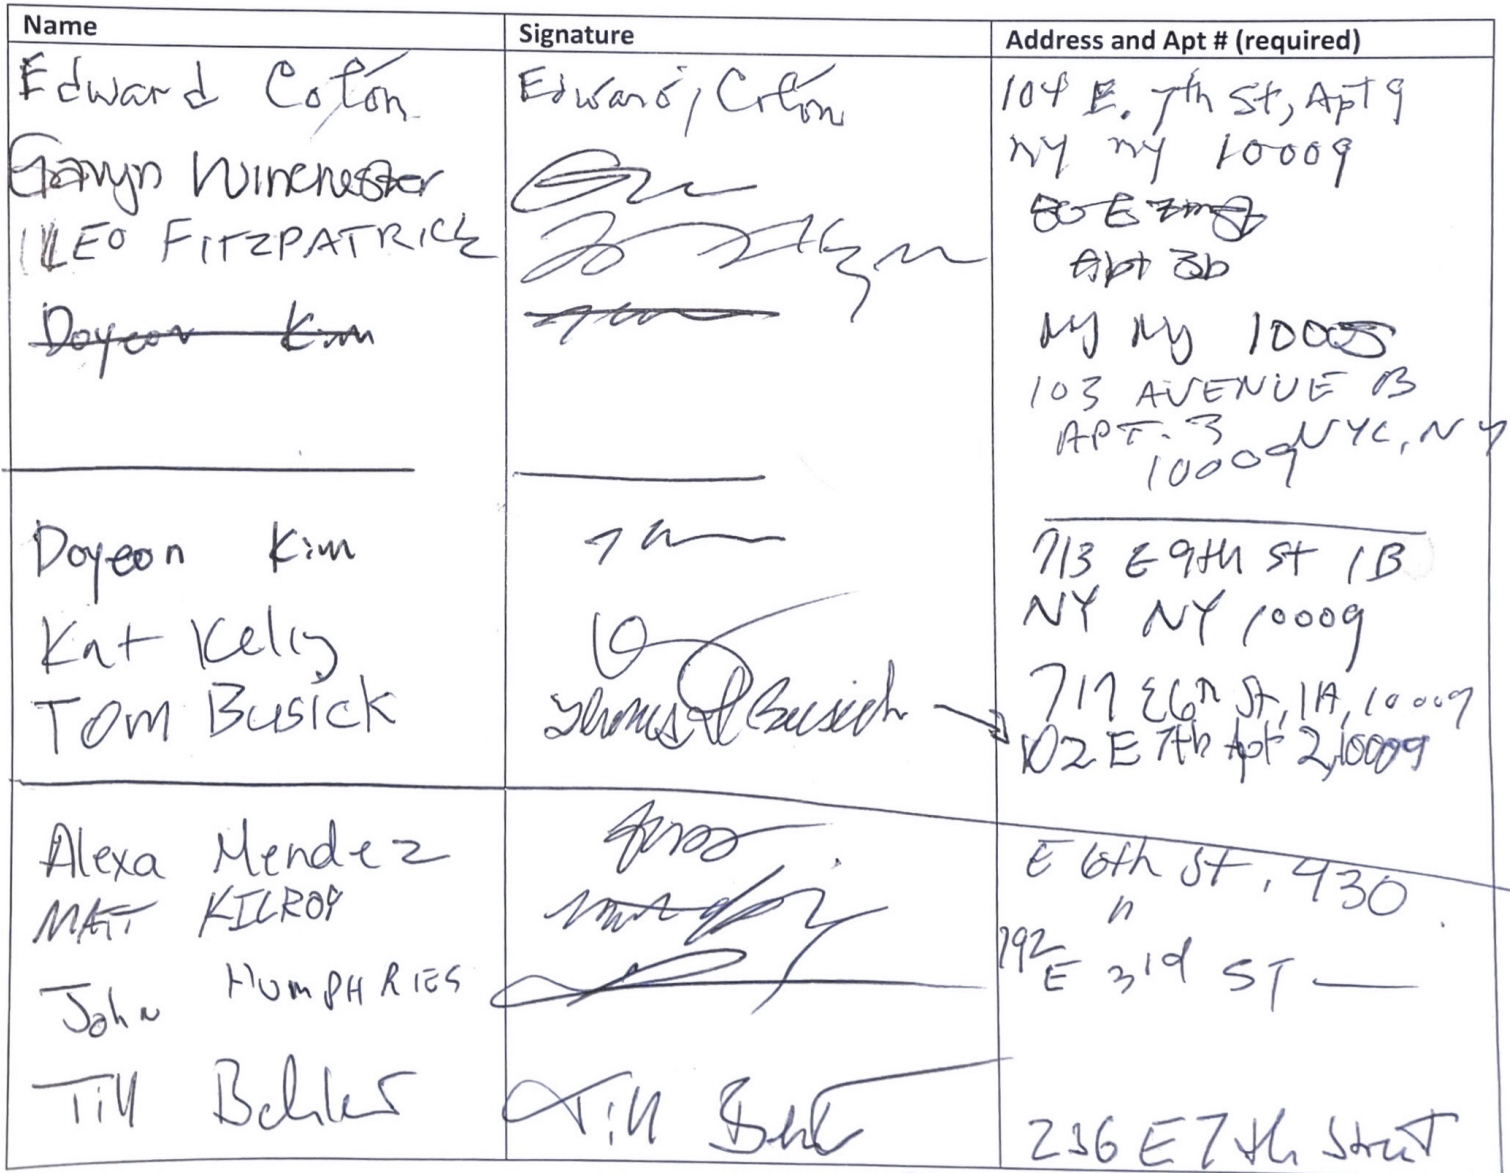 Name Signature Address and Apt # (required)
Edward Colón Edward, Colón 104 E. 7th St, Apt 9
NY NY 10009
Gavyn Winchester
LEO FITZPATRICK
Apt 3b
Doyeon Kim
NY NY 10005
103 AVENUE B
APT. 3 NYC, NY
10009
Doyeon Kim 713 E 9th St 1B
NY NY 10009
Kat Kelly 717 E 6th St, 1A, 10009
TOM BUSICK Thomas Busick 102 E 7th Apt 2, 10009
Alexa Mendez E 6th St, 930
MATT KILROY "
John HUMPHRIES E 3rd ST
Till Till 236 E 7th Street